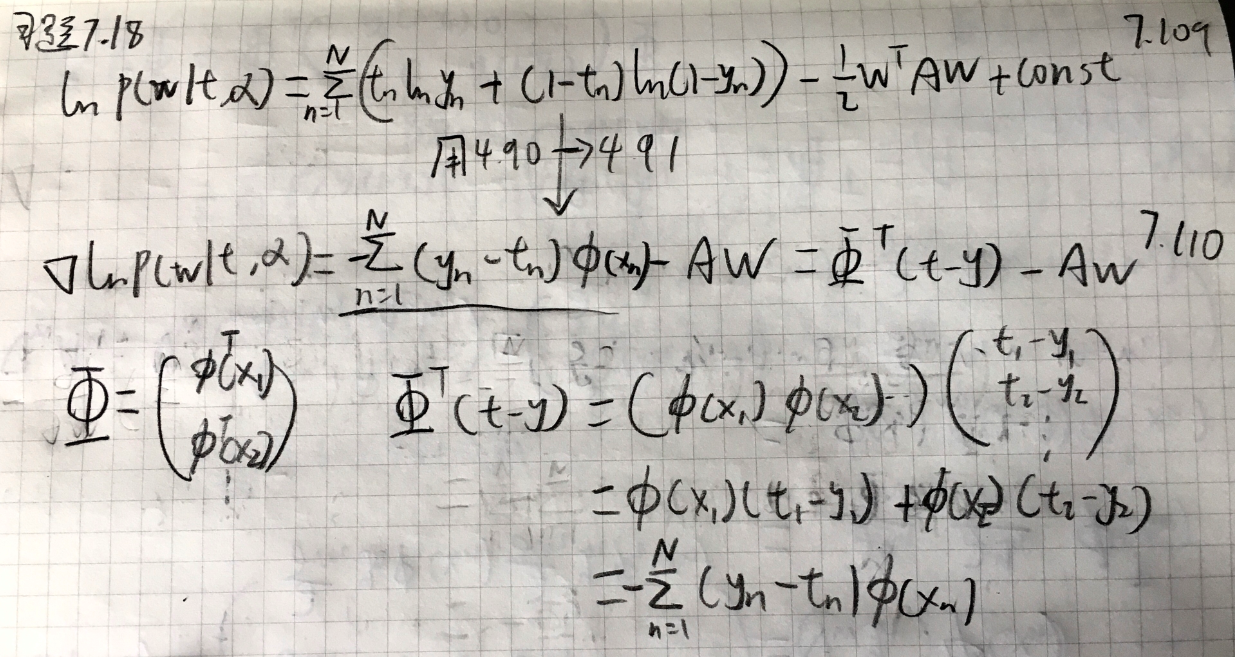 習題7.18
ln p(w|t,α) = Σ_{n=1}^{N} (t_n ln y_n + (1-t_n) ln(1-y_n)) - ½ w^T A w + const 7.109
用 4.90 → 4.91
∇ ln p(w|t,α) = -Σ_{n=1}^{N} (y_n - t_n) φ(x_n) - Aw = Φ^T (t-y) - Aw 7.110
Φ = (φ^T(x_1) φ^T(x_2) ⋮) Φ^T (t-y) = (φ(x_1) φ(x_2) ··) (t_1-y_1 t_2-y_2 ⋮)
= φ(x_1)(t_1-y_1) + φ(x_2)(t_2-y_2)
= -Σ_{n=1}^{N} (y_n - t_n) φ(x_n)